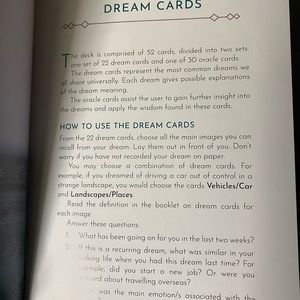 DREAM CARDS
The deck is comprised of 52 cards, divided into two sets:
one set of 22 dream cards and one of 30 oracle cards.
The dream cards represent the most common dreams we
all share universally. Each dream card gives possible explanations
of the dream meaning.
The oracle cards assist the user to gain further insight into
the dreams and apply the wisdom found in these cards.
HOW TO USE THE DREAM CARDS
From the 22 dream cards, choose all the main images you can
recall from your dream. Lay them out in front of you. Don't
worry if you have not recorded your dream on paper.
You may choose a combination of dream cards. For
example, if you dreamed of driving a car out of control in a
strange landscape, you would choose the cards Vehicles/Car
and Landscapes/Places.
Read the definition in the booklet on dream cards for
each image.
Answer these questions:
1. What has been going on for you in the last two weeks?
2. If this is a recurring dream, what was similar in your
waking life when you had this dream last time? For
example, did you start a new job? Or were you
about travelling overseas?
was the main emotion/s associated with the